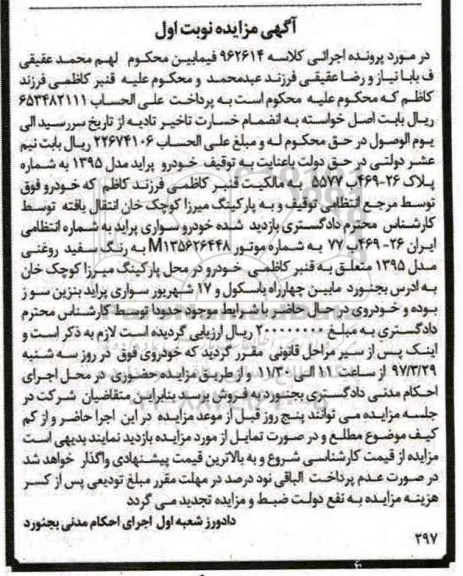 آگهی مزایده نوبت اول
در مورد پرونده اجرائی کلاسه ۹۶۲۶۱۴ فیمابین محکوم لهم محمد عقیقی
ف بابا نیاز و رضا عقیقی فرزند عبدمحمد و محکوم علیه قنبر کاظمی فرزند
کاظم که محکوم علیه محکوم است به پرداخت علی الحساب ۶۵۳۴۸۲۱۱۱
ریال بابت اصل خواسته به انضمام خسارت تاخیر تادیه از تاریخ سررسید الی
یوم الوصول در حق محکوم له و مبلغ علی الحساب ۲۲۶۷۴۱۰۶ ریال بابت نیم
عشر دولتی در حق دولت باعنایت به توقیف خودرو پراید مدل ۱۳۹۵ به شماره
پلاک ۲۶-۴۶۹ب ۵۵۷۷ به مالکیت قنبر کاظمی فرزند کاظم که خودرو فوق
توسط مرجع انتظامی توقیف و به پارکینگ میرزا کوچک خان انتقال یافته توسط
کارشناس محترم دادگستری بازدید شده خودرو سواری پراید به شماره انتظامی
ایران ۲۶-۴۶۹ب ۷۷ به شماره موتور M۱۳۵۶۲۶۴۴۸ به رنگ سفید روغنی
مدل ۱۳۹۵ متعلق به قنبر کاظمی خودرو در محل پارکینگ میرزا کوچک خان
به ادرس بجنورد مابین چهارراه باسکول و ۱۷ شهریور سواری پراید بنزین سو ز
بوده و خودروی در حال حاضر با شرایط موجود حدودا توسط کارشناس محترم
دادگستری به مبلغ ۲۰۰۰۰۰۰۰۰ ریال ارزیابی گردیده است لازم به ذکر است و
اینک پس از سیر مراحل قانونی مقرر گردید که خودروی فوق در روز سه شنبه
۹۷/۳/۲۹ از ساعت ۱۱ الی ۱۱/۳۰ و از طریق مزایده حضوری در محل اجرای
احکام مدنی دادگستری بجنورد به فروش برسد بنابراین متقاضیان شرکت در
جلسه مزایده می توانند پنج روز قبل از موعد مزایده در این اجرا حاضر و از کم
کیف موضوع مطلع و در صورت تمایل از مورد مزایده بازدید نمایند بدیهی است
مزایده از قیمت کارشناسی شروع و به بالاترین قیمت پیشنهادی واگذار خواهد شد
در صورت عدم پرداخت الباقی نود درصد در مهلت مقرر مبلغ تودیعی پس از کسر
هزینه مزایده به نفع دولت ضبط و مزایده تجدید می گردد
دادورز شعبه اول اجرای احکام مدنی بجنورد
۲۹۷